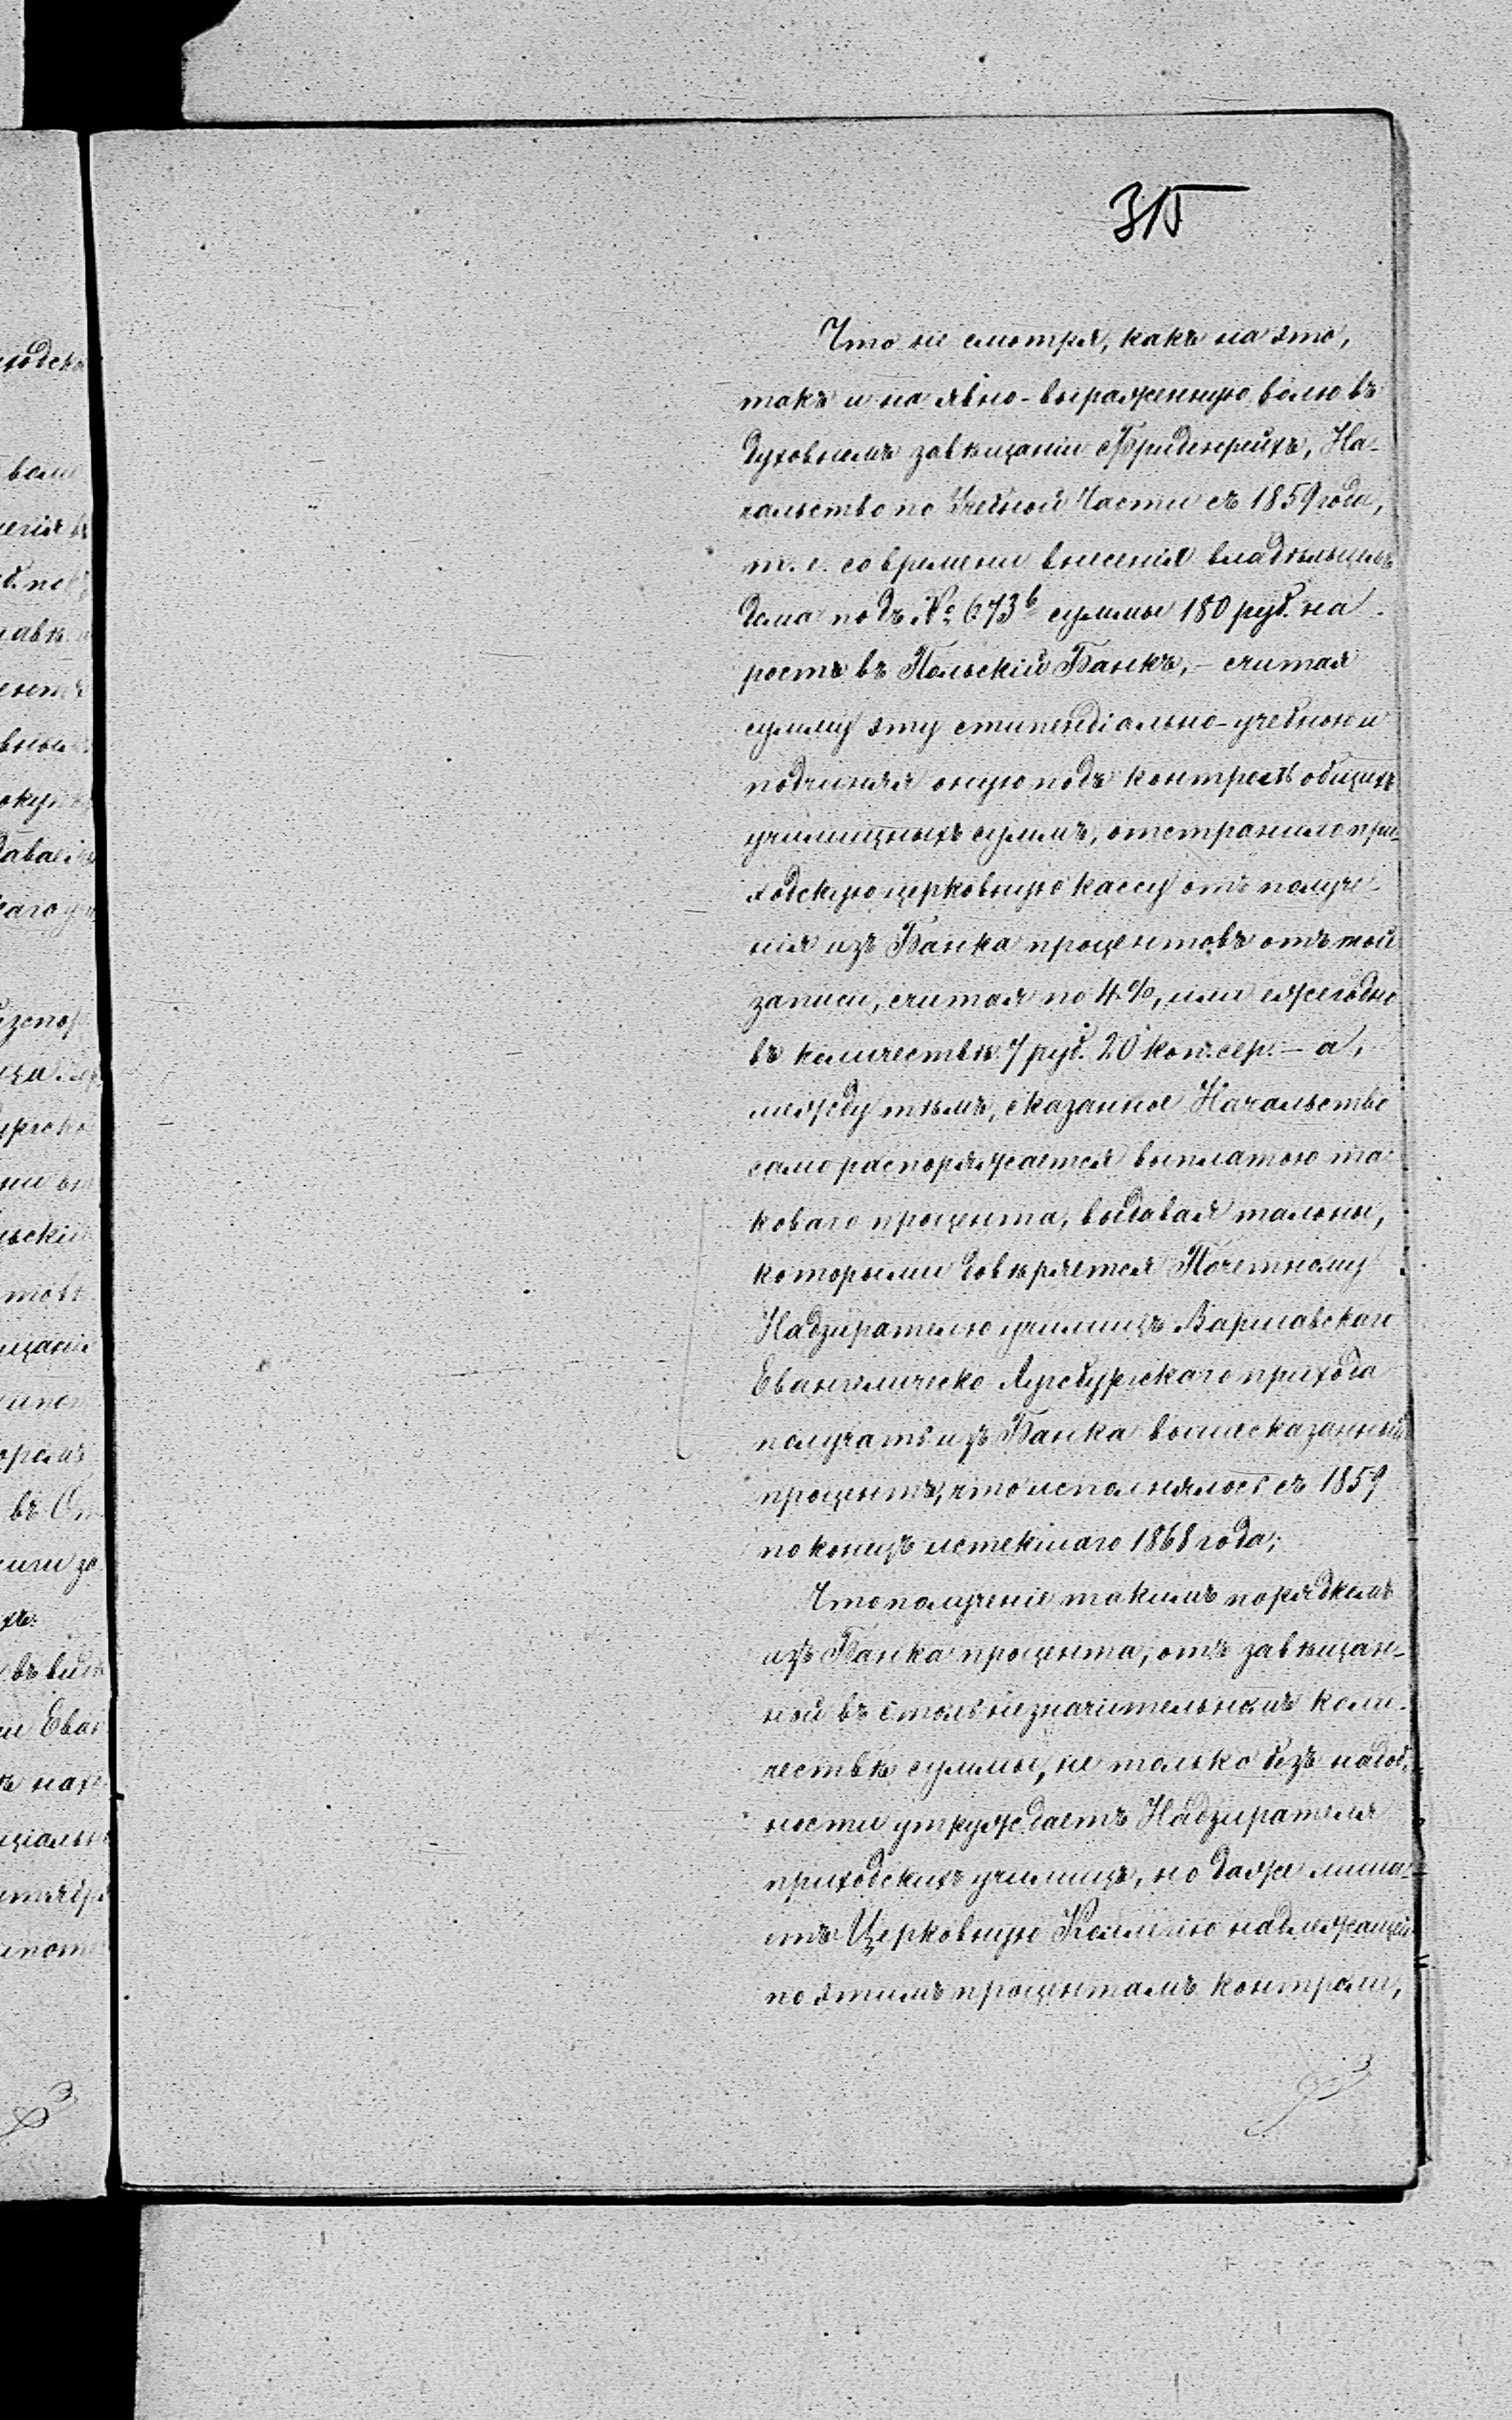 315
Что не смотря, какъ на это,
такъ и на явно-выраженную волю въ
духовномъ завѣщаніи Фриденрейхъ, На-
чальство по Учебной Части съ 1859 года,
т. е. со времени внесенія владѣльцемъ
дома подъ № 673 b суммы 180 руб. на
ростъ въ Польскій Банкъ, - считая
сумму эту стипендіально-учебною и
подчиняя оную подъ контроль общихъ
училищныхъ суммъ, отстранило при-
ходскую церковную кассу отъ получе-
нія изъ Банка процентовъ отъ той
записи, считая по 4%, или ежегодно
въ количествѣ 7 руб. 20 коп. сер. - а,
между тѣмъ, сказанное Начальство
само распоряжается выплатою та-
коваго процента, выдавая талоны,
которыми довѣряется Почетному
Надзирателю училищъ Варшавскаго
Евангелическо Аугсбургскаго прихода
получать изъ Банка вышесказанный
процентъ, что исполнялось съ 1859
по конецъ истекшаго 1868 года;
Что полученіе такимъ порядкомъ
изъ Банка процента, отъ завѣщан-
ной въ столь незначительномъ коли-
чествѣ суммы, не только безъ надоб-
ности утруждаетъ Надзирателя
приходскихъ училищъ, но даже лиша-
етъ Церковную Коллегію надлежащей
по этимъ процентамъ контроли,